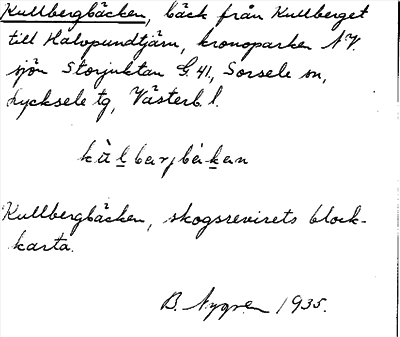 Kullbergbäcken, bäck från Kullberget
till Halvpundtjärn, kronoparken N.V.
sjön Storjuktan G. 41, Sorsele sn,
Lycksele tg, Västerb. l.
kullbergbäcken
Kullbergbäcken, skogsrevirets block-
karta.
B. Nygren 1935.